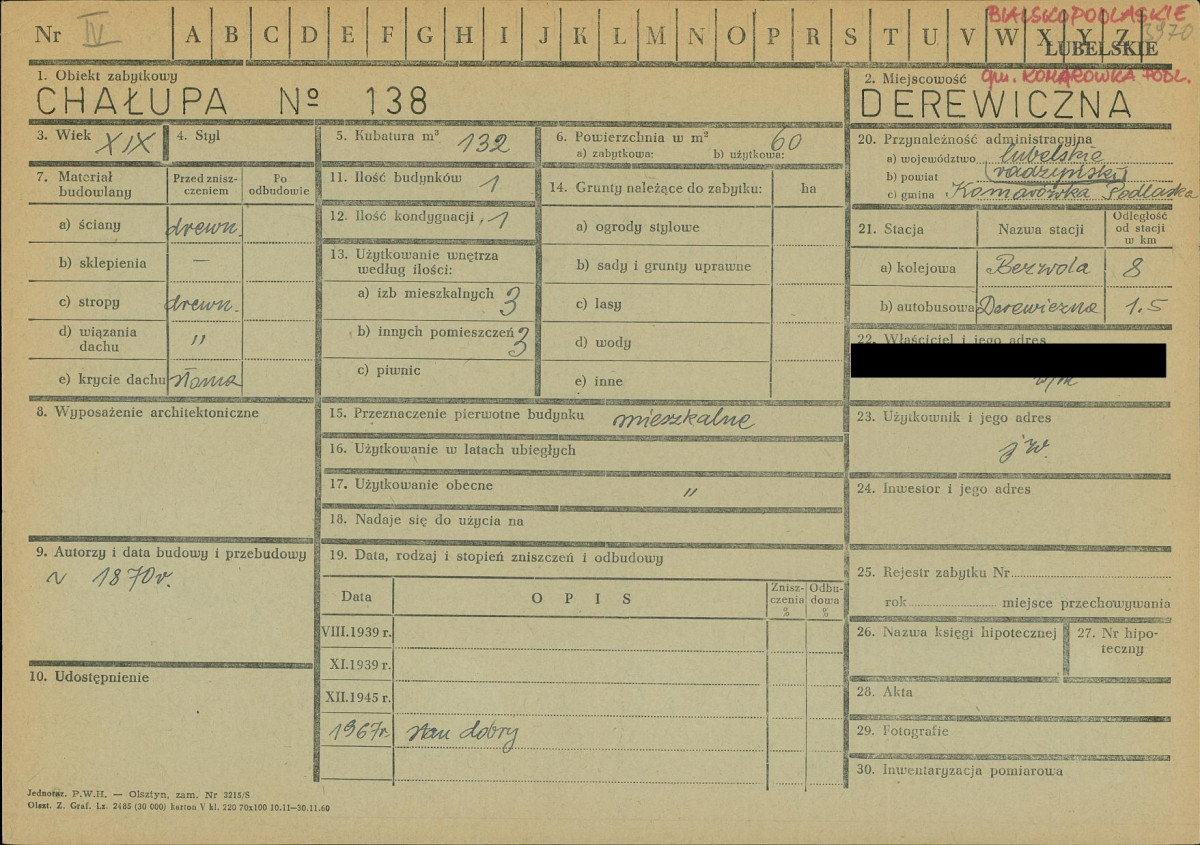 BIALSKOPODLASKIE
Nr IV A B C D E F G H I J K L M N O P R S T U V W X Y Z 3970
LUBELSKIE
gm. KOMARÓWKA PODL.
1. Obiekt zabytkowy
CHAŁUPA Nº 138
2. Miejscowość
DEREWICZNA
3. Wiek XIX
4. Styl
5. Kubatura m³ 132
6. Powierzchnia w m² 60
a) zabytkowa: b) użytkowa:
7. Materiał budowlany
Przed znisz-
czeniem
Po
odbudowie
a) ściany drewn.
b) sklepienia —
c) stropy drewn.
d) wiązania
dachu "
e) krycie dachu słoma
8. Wyposażenie architektoniczne
9. Autorzy i data budowy i przebudowy
~ 1870r.
10. Udostępnienie
11. Ilość budynków 1
12. Ilość kondygnacji 1
13. Użytkowanie wnętrza
według ilości:
a) izb mieszkalnych 3
b) innych pomieszczeń 3
c) piwnic
14. Grunty należące do zabytku: ha
a) ogrody stylowe
b) sady i grunty uprawne
c) lasy
d) wody
e) inne
15. Przeznaczenie pierwotne budynku mieszkalne
16. Użytkowanie w latach ubiegłych
17. Użytkowanie obecne "
18. Nadaje się do użycia na
19. Data, rodzaj i stopień zniszczeń i odbudowy
Data OPIS
Znisz-
czenia
%
Odbu-
dowa
%
VIII.1939 r.
XI.1939 r.
XII.1945 r.
1967r. stan dobry
20. Przynależność administracyjna
a) województwo lubelskie
b) powiat radzyński
c) gmina Komarówka Podlaska
21. Stacja
Nazwa stacji
Odległość
od stacji
w km
a) kolejowa Bezwola 8
b) autobusowa Derewiczna 1.5
22. Właściciel i jego adres
w/m
23. Użytkownik i jego adres
jw.
24. Inwestor i jego adres
25. Rejestr zabytku Nr
rok miejsce przechowywania
26. Nazwa księgi hipotecznej
27. Nr hipo-
teczny
28. Akta
29. Fotografie
30. Inwentaryzacja pomiarowa
Jednotaz. P.W.H. — Olsztyn, zam. Nr 3215/S
Olszt. Z. Graf. Lz. 2485 (30 000) karton V kl. 220 70x100 10.11—30.11.60